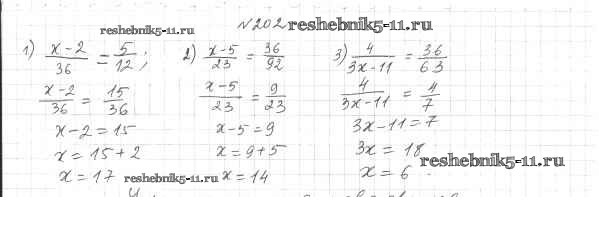 №202 reshebnik5-11.ru
reshebnik5-11.ru
1) (x-2)/36 = 5/12;
(x-2)/36 = 15/36
x-2=15
x=15+2
x=17
2) (x-5)/23 = 36/92
(x-5)/23 = 9/23
x-5=9
x=9+5
x=14
3) 4/(3x-11) = 36/63
4/(3x-11) = 4/7
3x-11=7
3x=18
x=6
reshebnik5-11.ru
reshebnik5-11.ru